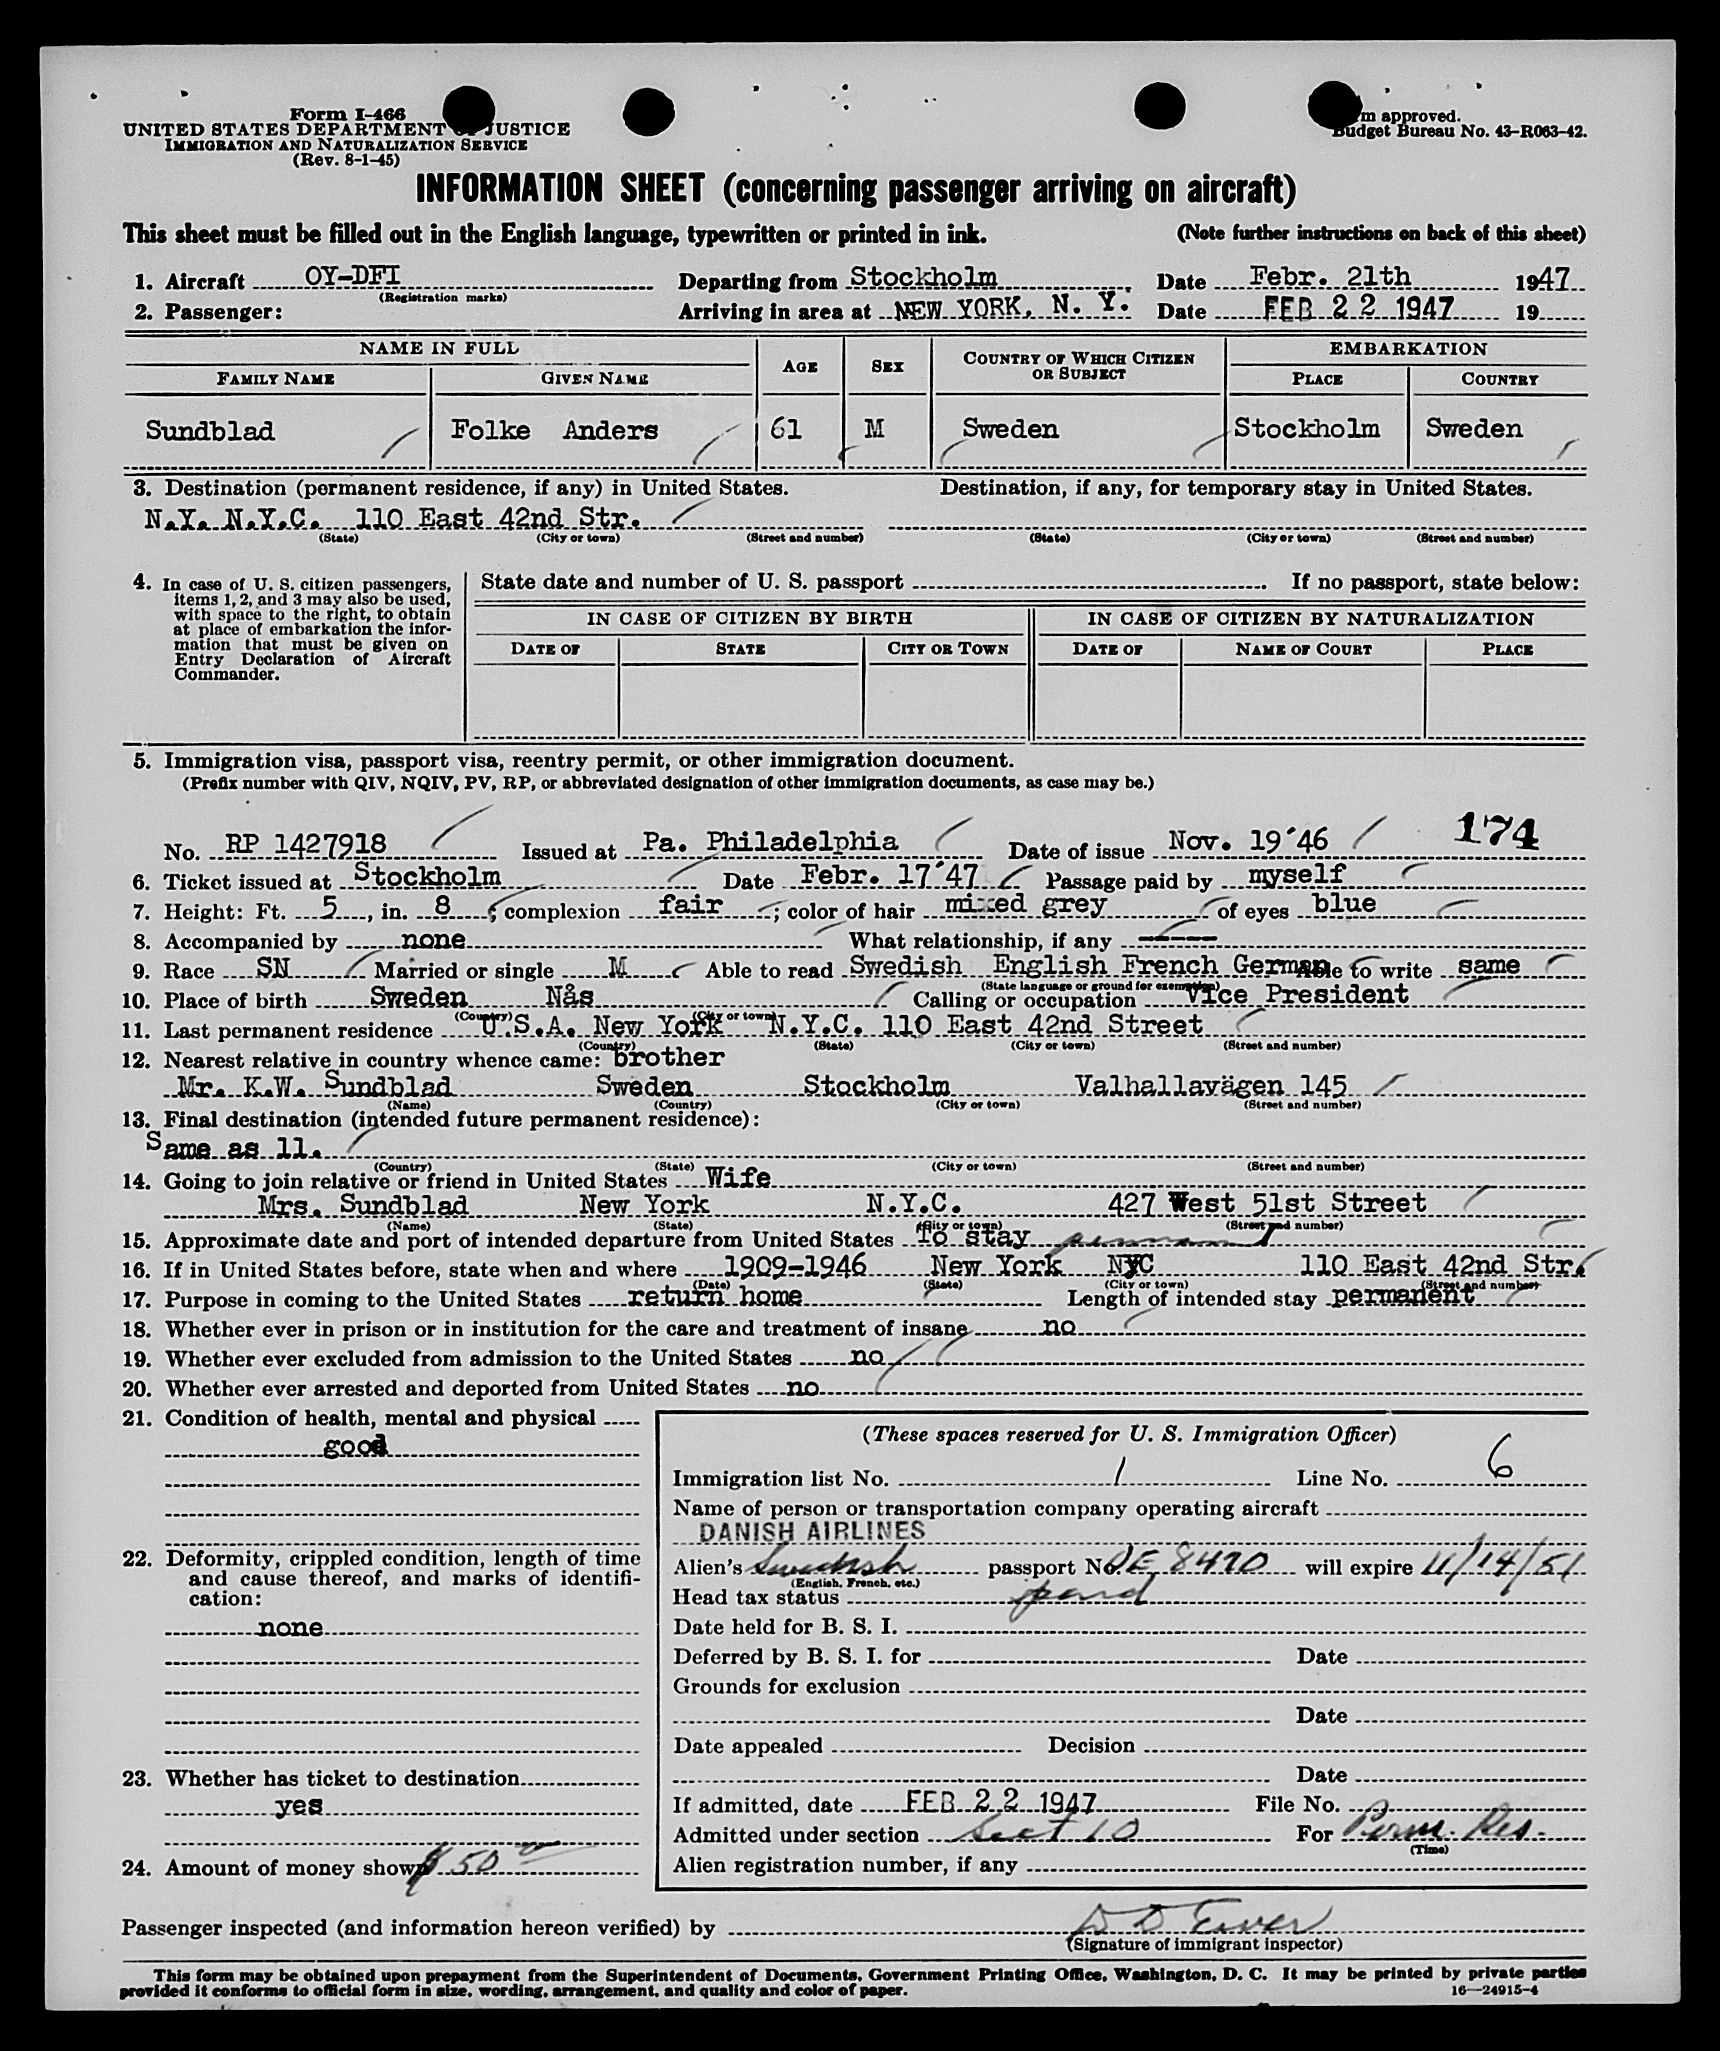 Form I-466
UNITED STATES DEPARTMENT OF JUSTICE
IMMIGRATION AND NATURALIZATION SERVICE
(Rev. 8-1-45)
m approved.
Budget Bureau No. 43-R063-42.
INFORMATION SHEET (concerning passenger arriving on aircraft)
This sheet must be filled out in the English language, typewritten or printed in ink. (Note further instructions on back of this sheet)
1. Aircraft OY-DFI Departing from Stockholm, Date Febr. 21th 1947
(Registration marks)
2. Passenger: Arriving in area at NEW YORK, N. Y. Date FEB 22 1947 19
NAME IN FULL AGE SEX COUNTRY OF WHICH CITIZEN OR SUBJECT EMBARKATION
FAMILY NAME GIVEN NAME PLACE COUNTRY
Sundblad Folke Anders 61 M Sweden Stockholm Sweden
3. Destination (permanent residence, if any) in United States. Destination, if any, for temporary stay in United States.
N.Y. N.Y.C. 110 East 42nd Str.
(State) (City or town) (Street and number) (State) (City or town) (Street and number)
4. In case of U. S. citizen passengers,
items 1, 2, and 3 may also be used,
with space to the right, to obtain
at place of embarkation the infor-
mation that must be given on
Entry Declaration of Aircraft
Commander.
State date and number of U. S. passport . If no passport, state below:
IN CASE OF CITIZEN BY BIRTH IN CASE OF CITIZEN BY NATURALIZATION
DATE OF STATE CITY OR TOWN DATE OF NAME OF COURT PLACE
5. Immigration visa, passport visa, reentry permit, or other immigration document.
(Prefix number with QIV, NQIV, PV, RP, or abbreviated designation of other immigration documents, as case may be.)
174
No. RP 1427918 Issued at Pa. Philadelphia Date of issue Nov. 19´46
6. Ticket issued at Stockholm Date Febr. 17´47 Passage paid by myself
7. Height: Ft. 5, in. 8; complexion fair; color of hair mixed grey of eyes blue
8. Accompanied by none What relationship, if any -----
9. Race SN Married or single M Able to read Swedish English French German Able to write same
(State language or ground for exemption)
10. Place of birth Sweden Nås Calling or occupation Vice President
(Country) (City or town)
11. Last permanent residence U.S.A. New York N.Y.C. 110 East 42nd Street
(Country) (State) (City or town) (Street and number)
12. Nearest relative in country whence came: brother
Mr. K.W. Sundblad Sweden Stockholm Valhallavägen 145
(Name) (Country) (City or town) (Street and number)
13. Final destination (intended future permanent residence):
Same as 11.
(Country) (State) (City or town) (Street and number)
14. Going to join relative or friend in United States Wife
Mrs. Sundblad New York N.Y.C. 427 West 51st Street
(Name) (State) (City or town) (Street and number)
15. Approximate date and port of intended departure from United States To stay
16. If in United States before, state when and where 1909-1946 New York NYC 110 East 42nd Str.
(Date) (State) (City or town) (Street and number)
17. Purpose in coming to the United States return home Length of intended stay permanent
18. Whether ever in prison or in institution for the care and treatment of insane no
19. Whether ever excluded from admission to the United States no
20. Whether ever arrested and deported from United States no
21. Condition of health, mental and physical
good
22. Deformity, crippled condition, length of time
and cause thereof, and marks of identifi-
cation:
none
23. Whether has ticket to destination
yes
24. Amount of money shown $50 00
(These spaces reserved for U. S. Immigration Officer)
Immigration list No. 1 Line No. 6
Name of person or transportation company operating aircraft
DANISH AIRLINES
Alien's Swedish passport No. DE 8470 will expire 11/14/51
(English, French, etc.)
Head tax status paid
Date held for B. S. I.
Deferred by B. S. I. for Date
Grounds for exclusion
Date
Date appealed Decision
Date
If admitted, date FEB 22 1947 File No.
Admitted under section Sect 10 For Perm. Res.
(Time)
Alien registration number, if any
Passenger inspected (and information hereon verified) by
(Signature of immigrant inspector)
This form may be obtained upon prepayment from the Superintendent of Documents, Government Printing Office, Washington, D. C. It may be printed by private parties
provided it conforms to official form in size, wording, arrangement, and quality and color of paper.
16—24915-4